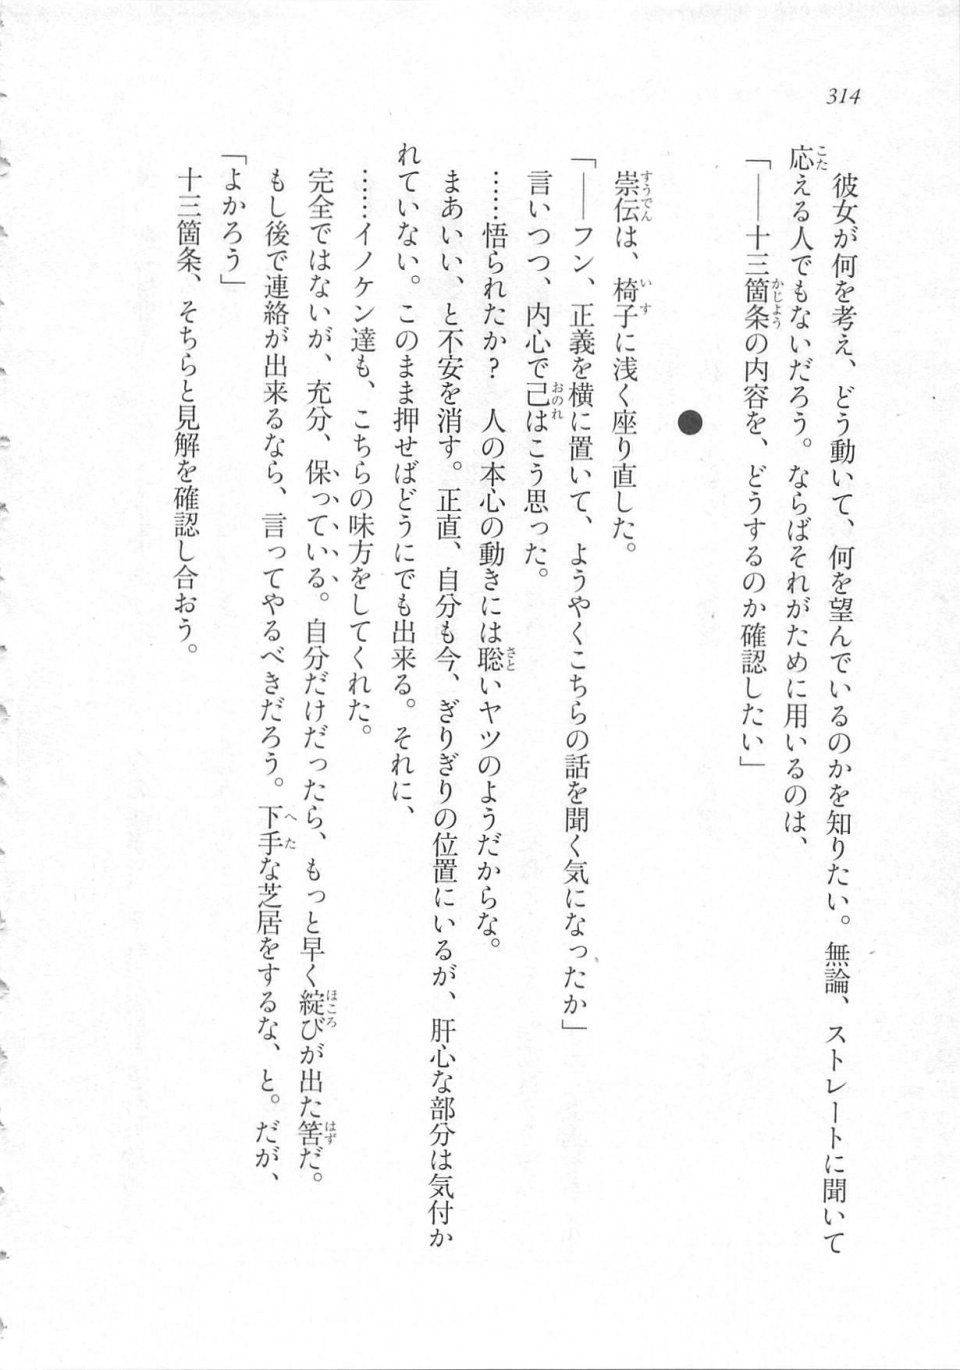 314
彼女が何を考え、どう動いて、何を望んでいるのかを知りたい。無論、ストレートに聞いて
応える人でもないだろう。ならばそれがために用いるのは、
「――十三箇条の内容を、どうするのか確認したい」
●
崇伝は、椅子に浅く座り直した。
「――フン、正義を横に置いて、ようやくこちらの話を聞く気になったか」
言いつつ、内心で己はこう思った。
……悟られたか？　人の本心の動きには聡いヤツのようだからな。
まあいい、と不安を消す。正直、自分も今、ぎりぎりの位置にいるが、肝心な部分は気付か
れていない。このまま押せばどうにでも出来る。それに、
……イノケン達も、こちらの味方をしてくれた。
完全ではないが、充分、保っている。自分だけだったら、もっと早く綻びが出た筈だ。
もし後で連絡が出来るなら、言ってやるべきだろう。下手な芝居をするな、と。だが、
「よかろう」
十三箇条、そちらと見解を確認し合おう。